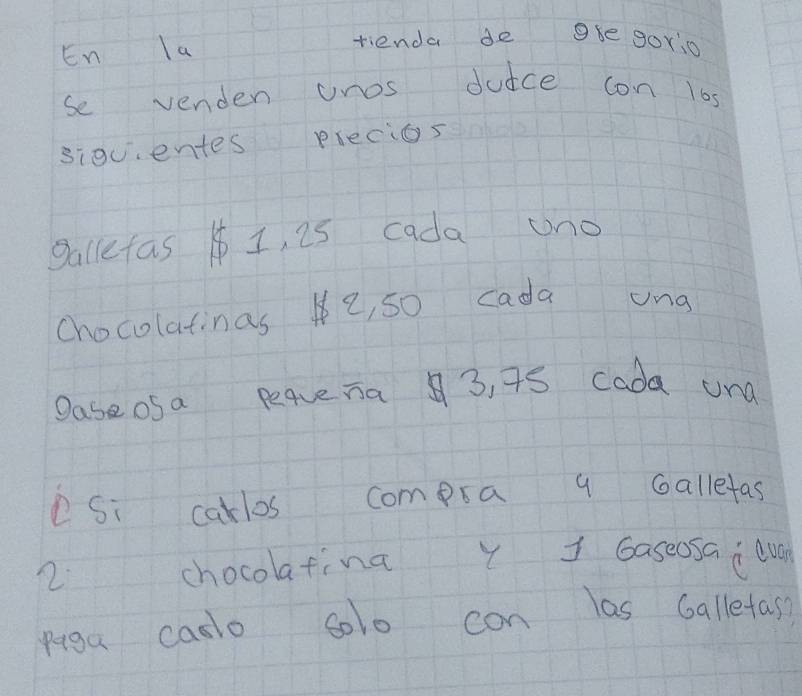 En la tienda de gregorio
se venden unos dudce con los
siguientes precios
galletas $ 1,25 cada uno
chocolatinas $ 2,50 cada una
gaseosa pequeña $ 3,75 cada una
¿ Si carlos compra 4 Galletas
2 chocolatina y 1 Gaseosa ¿
paga carlo solo con las Galletas?